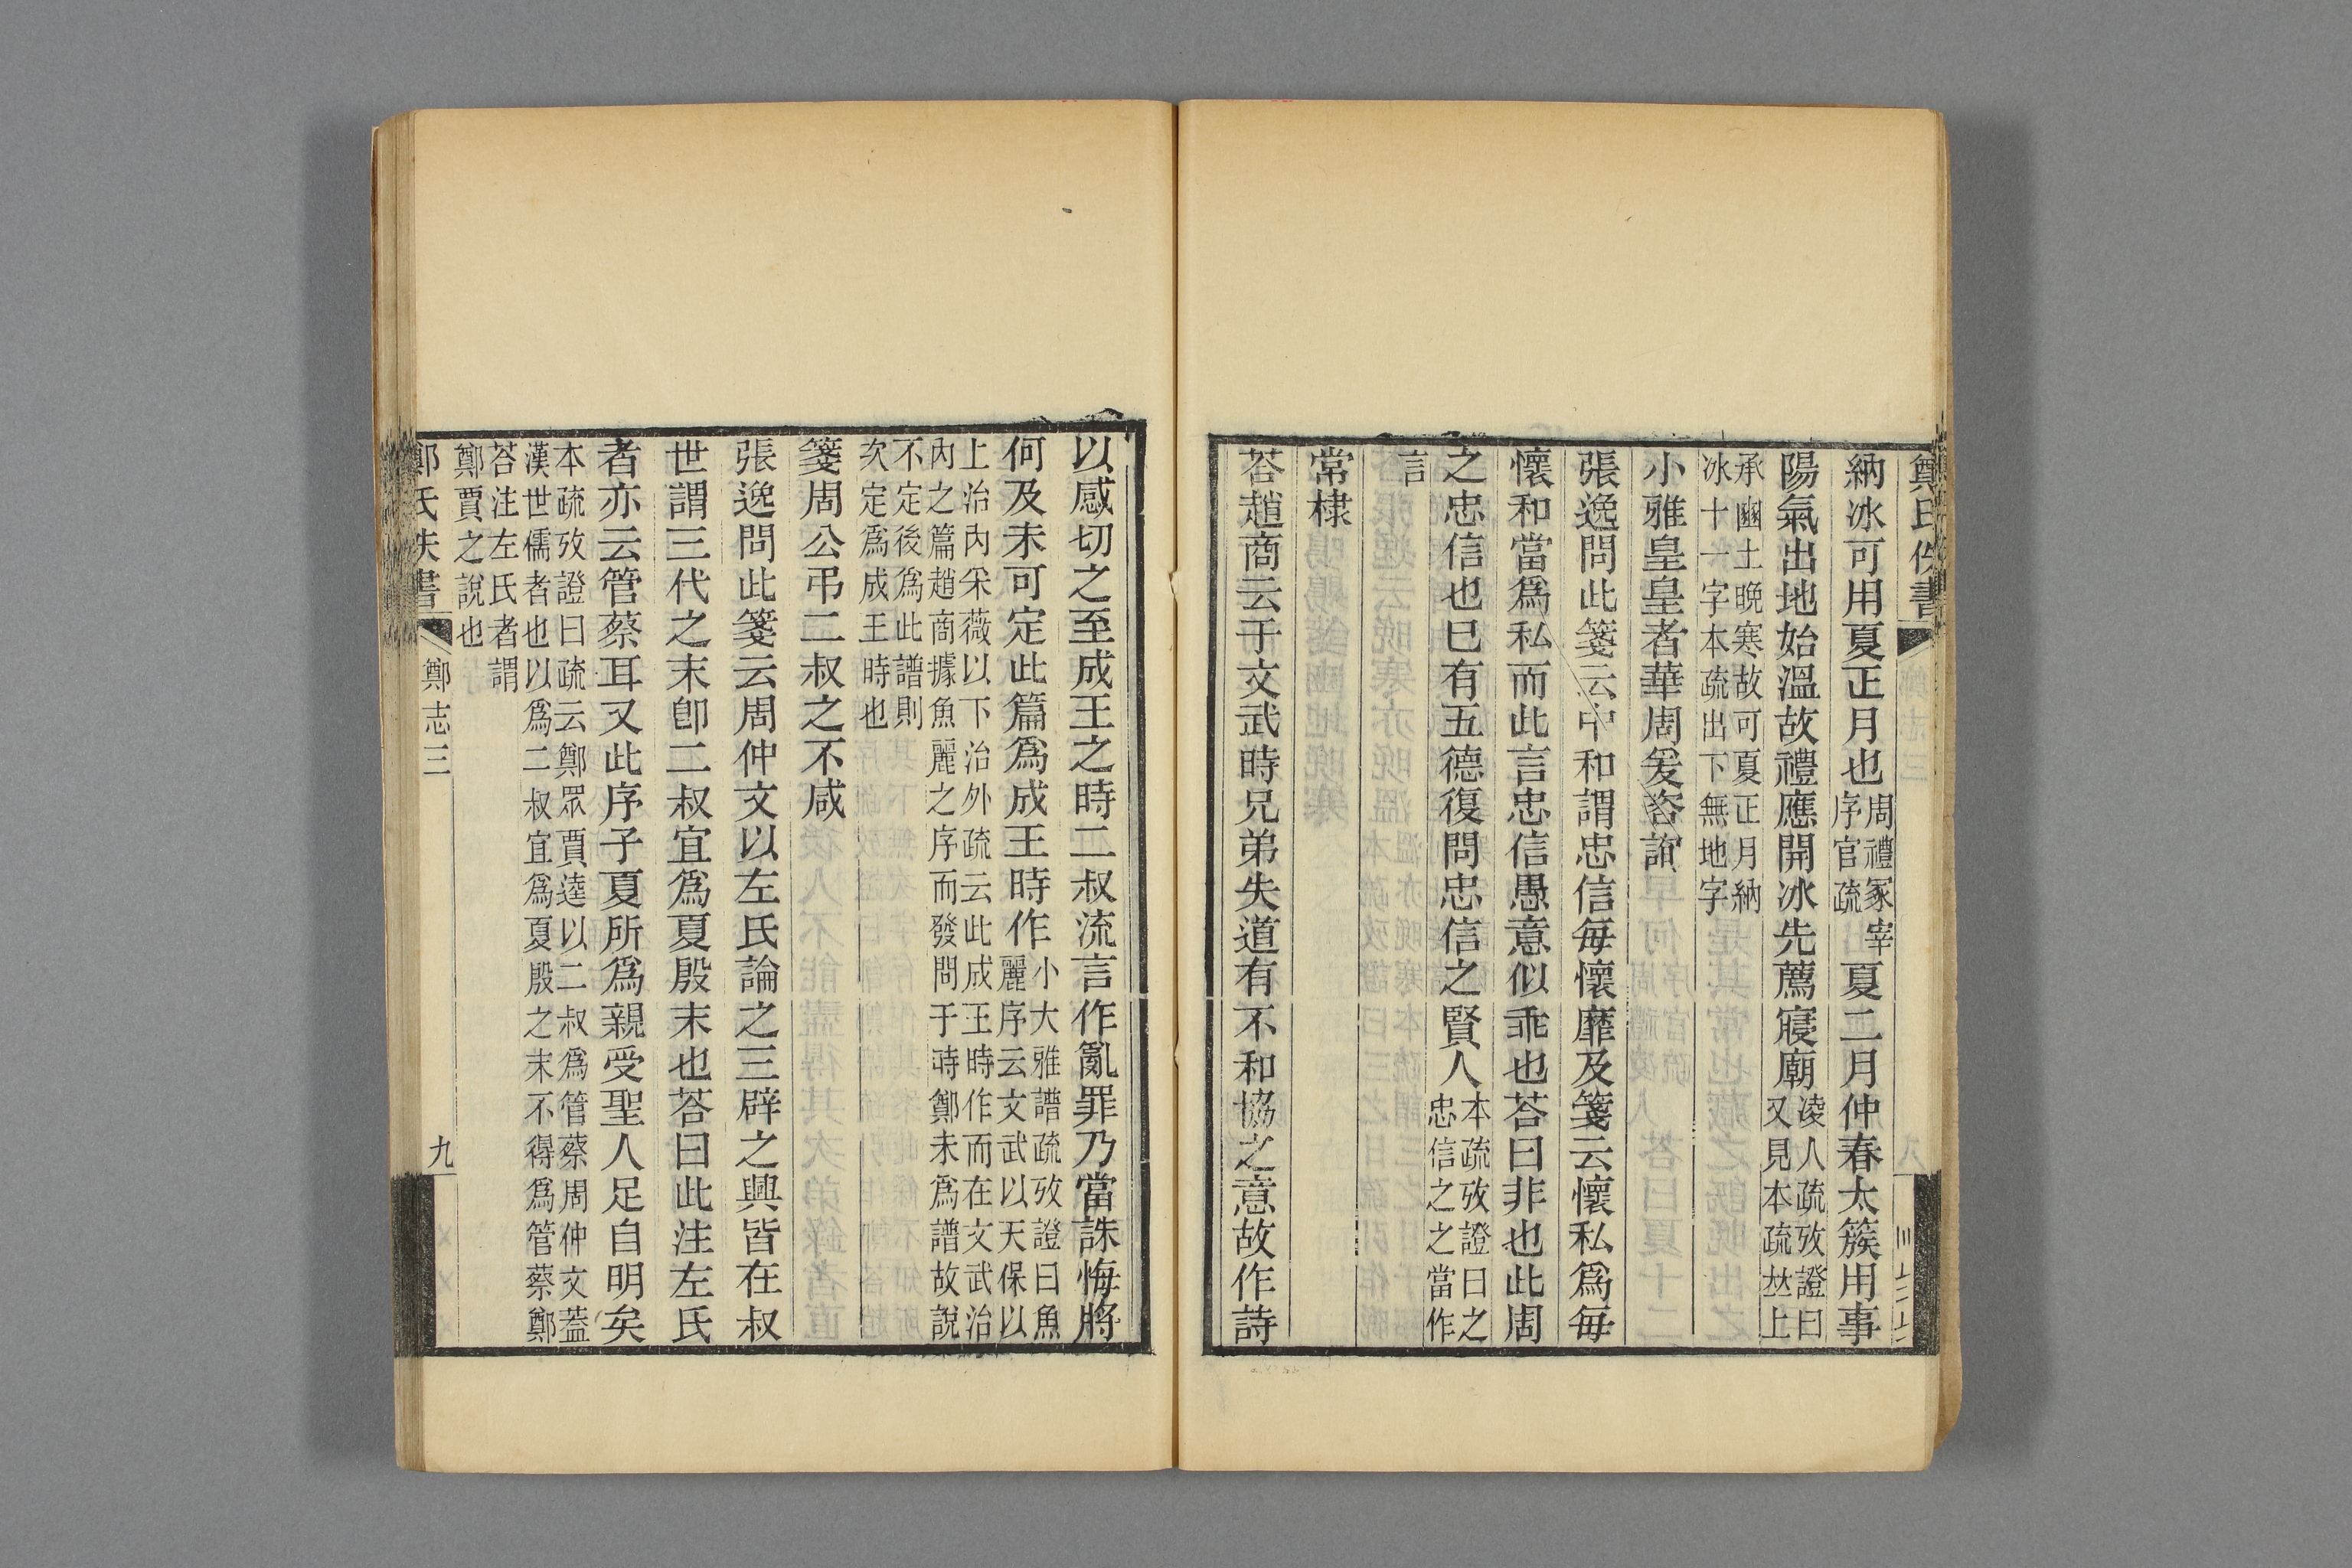 鄭氏佚書
納冰可用夏正月也周禮冢宰序官疏夏二月仲春太簇用事
陽氣出地始溫故禮應開冰先薦寢廟凌人疏攷證曰又見本疏竝上
承豳土晚寒故可夏正月納
冰十一字本疏出下無地字
小雅皇皇者華周爰咨諏
張逸問此箋云中和謂忠信每懷靡及箋云懷私爲每
懷和當爲私而此言忠信愚意似乖也荅曰非也此周
之忠信也巳有五德復問忠信之賢人本疏攷證曰之忠信之之當作
言
常棣
荅趙商云于文武時兄弟失道有不和協之意故作詩
以感切之至成王之時二叔流言作亂罪乃當誅悔將
何及未可定此篇爲成王時作小大雅譜疏攷證曰魚麗序云文武以天保以
上治內采薇以下治外疏云此成王時作而在文武治
內之篇趙商據魚麗之序而發問于時鄭未爲譜故說
不定後爲此譜則
次定爲成王時也
箋周公弔二叔之不咸
張逸問此箋云周仲文以左氏論之三辟之興皆在叔
世謂三代之末卽二叔宜爲夏殷末也荅曰此注左氏
者亦云管蔡耳又此序子夏所爲親受聖人足自明矣
本疏攷證曰疏云鄭眾賈逵以二叔爲管蔡周仲文蓋
漢世儒者也以爲二叔宜爲夏殷之末不得爲管蔡鄭
荅注左氏者謂
鄭賈之說也
鄭氏佚書
鄭志三
九